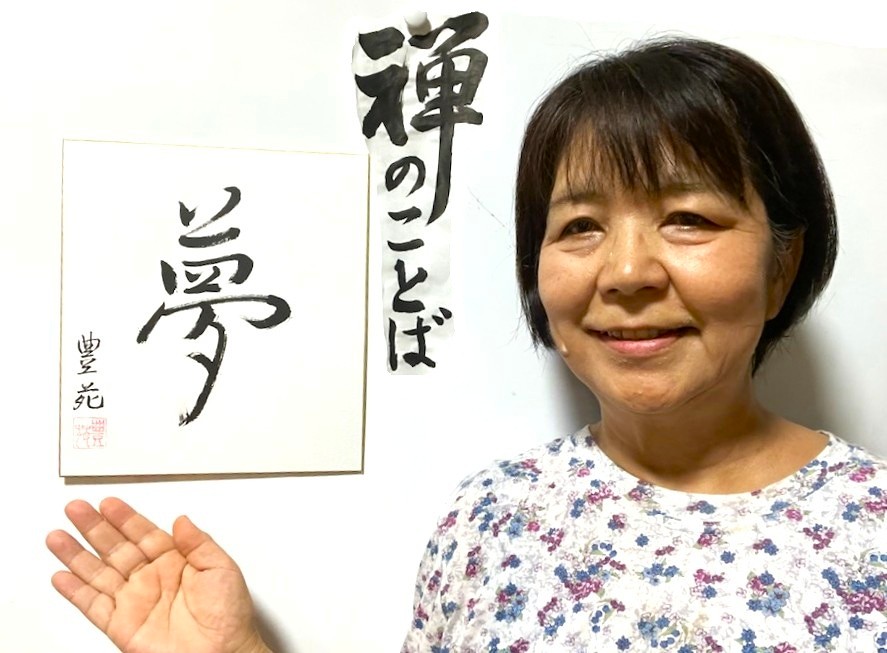 禅のことば
夢
豊苑